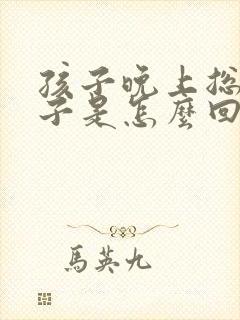 孩子晚上总
子是怎麽回
馬英九